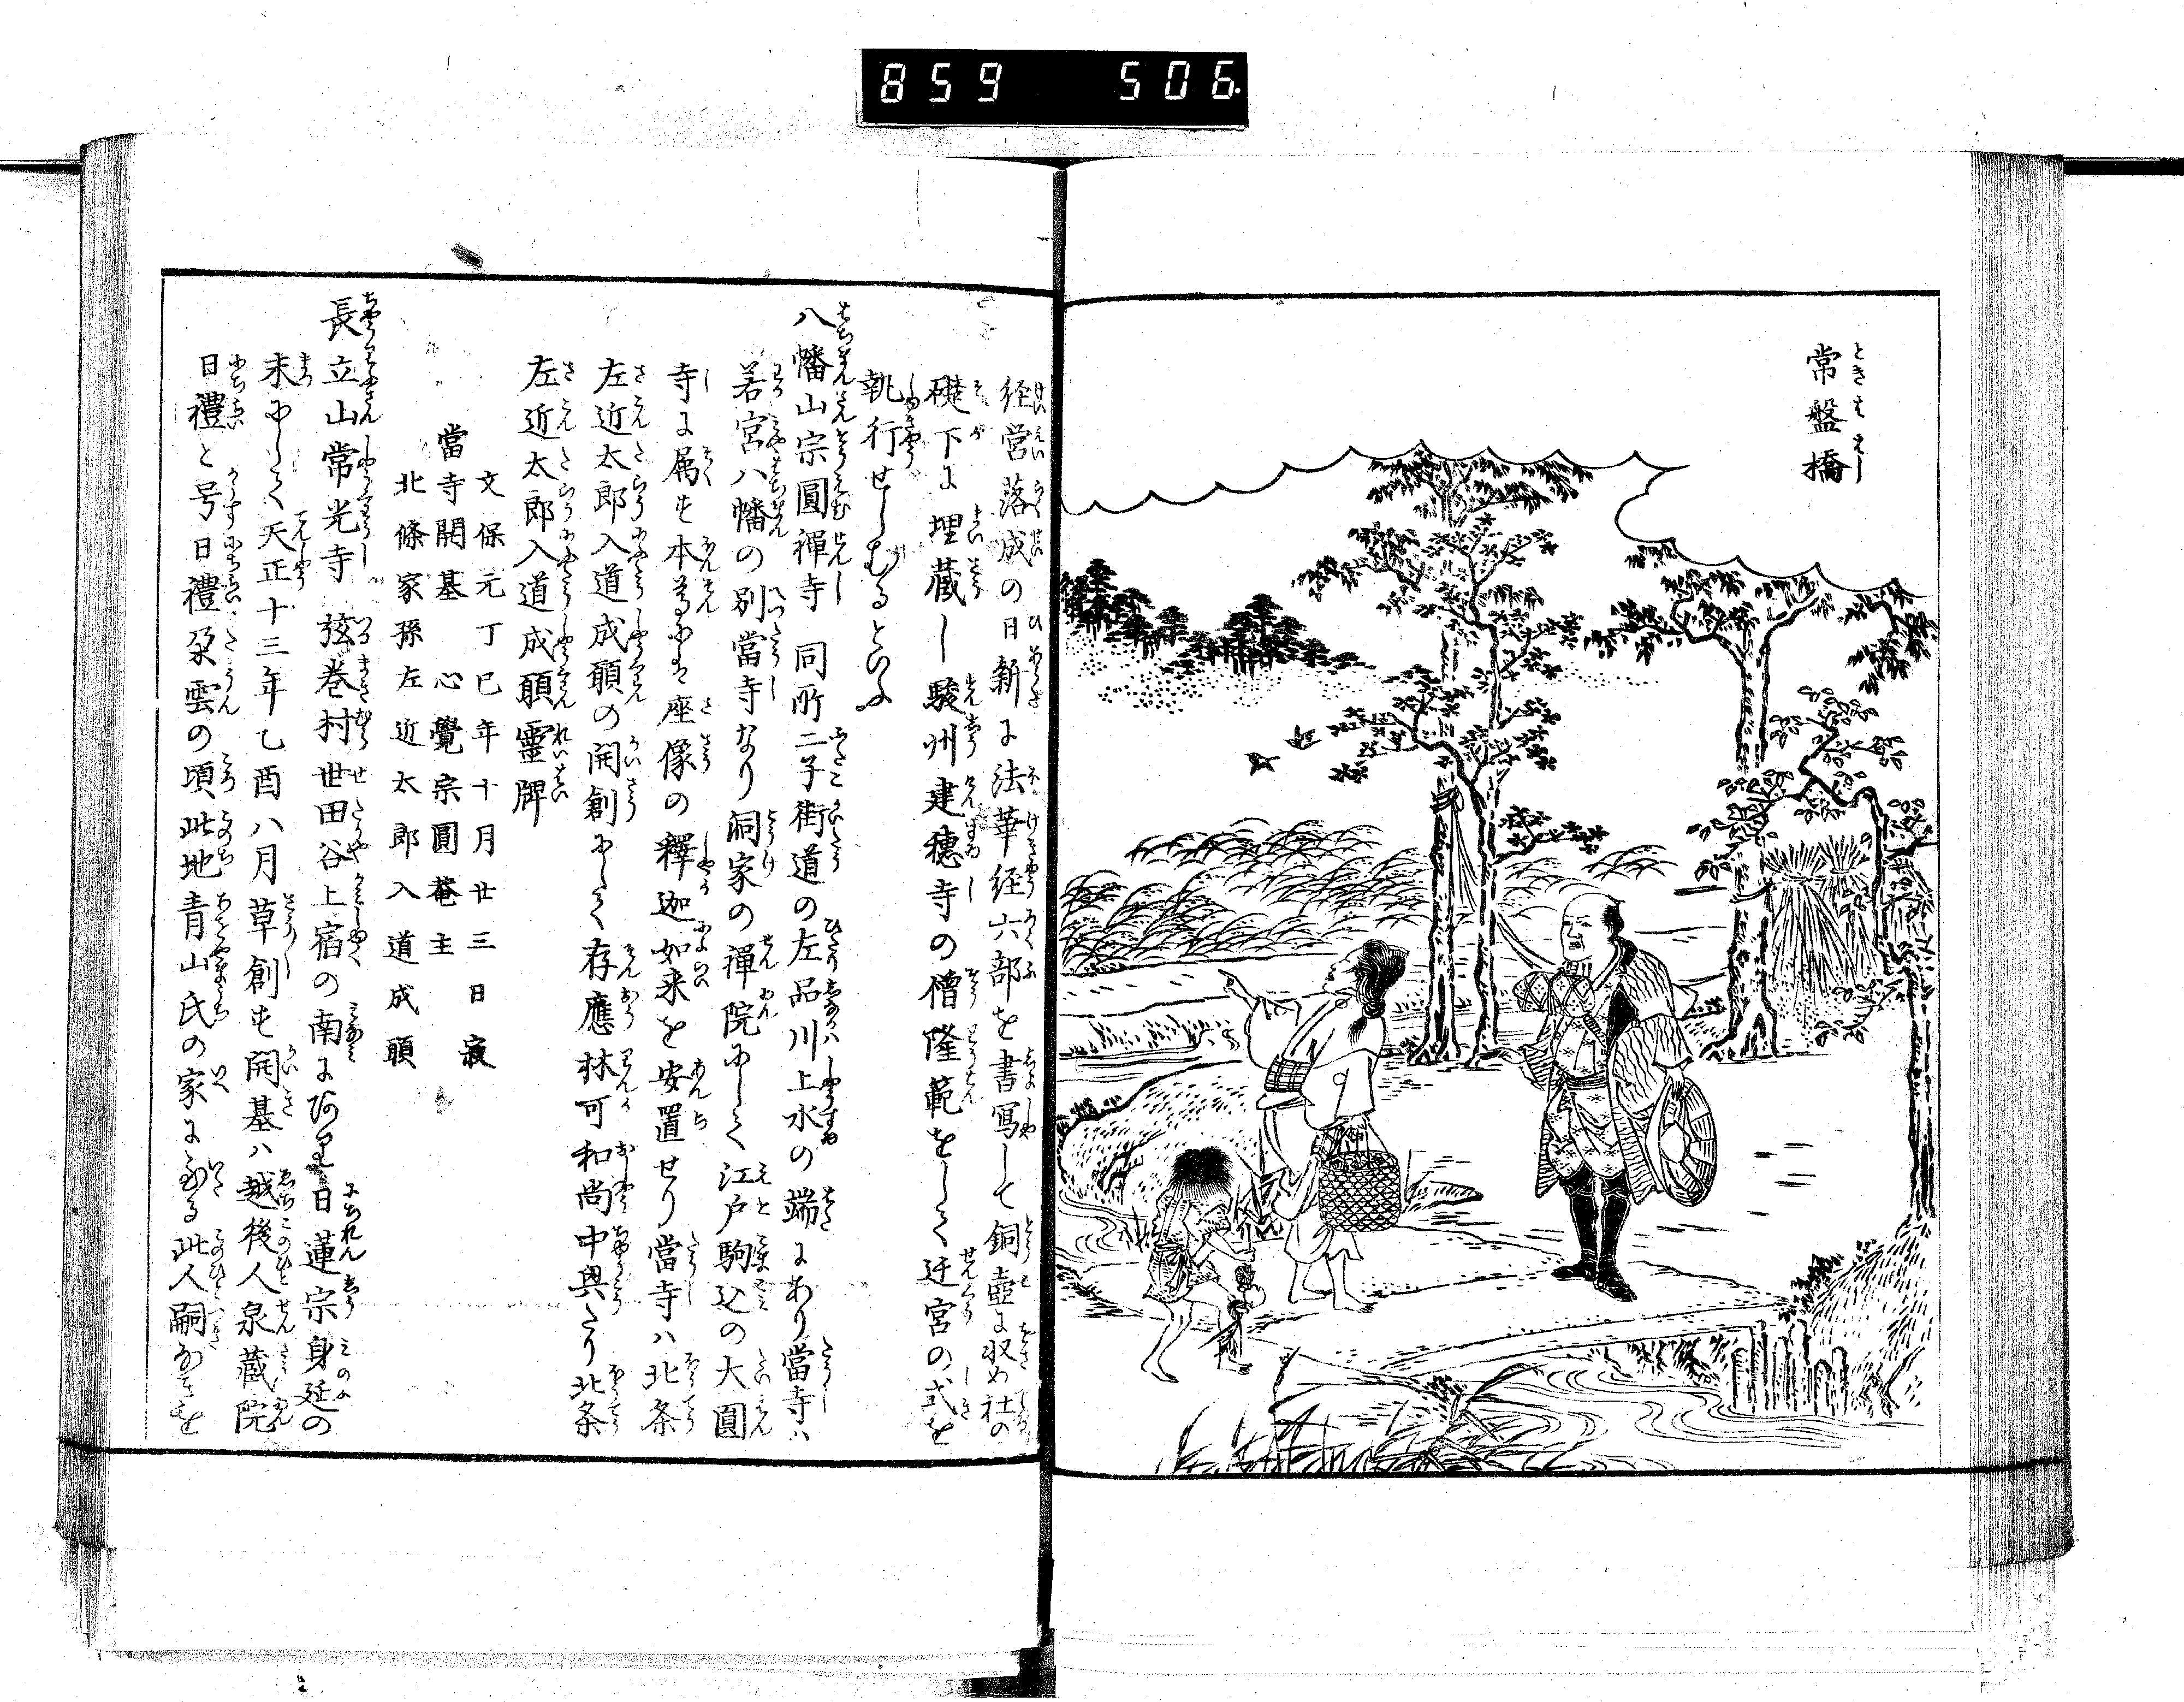 859 506
常盤橋
経営落成の日新に法華経六部を書写して銅壺に収め社の
礎下に埋蔵し駿州建穂寺の僧隆範をして迁宮の式を
執行せしむるといふ
八幡山宗圓禅寺 同所二子街道の左品川上水の端にあり當寺ハ
若宮八幡の別當寺なり洞家の禅院にして江戸駒込の大圓
寺に属す本尊にハ座像の釋迦如来を安置せり當寺ハ北条
左近太郎入道成願の開創にして存應林可和尚中興たり北条
左近太郎入道成願靈牌
文保元丁巳年十月廿三日寂
當寺開基 心覺宗圓菴主
北條家孫左近太郎入道成願
長立山常光寺 弦巻村世田谷上宿の南にあり日蓮宗身延の
末にして天正十三年乙酉八月草創す開基ハ越後人泉蔵院
日禮と号日禮朶雲の頃此地青山氏の家にいたる此人嗣なきを